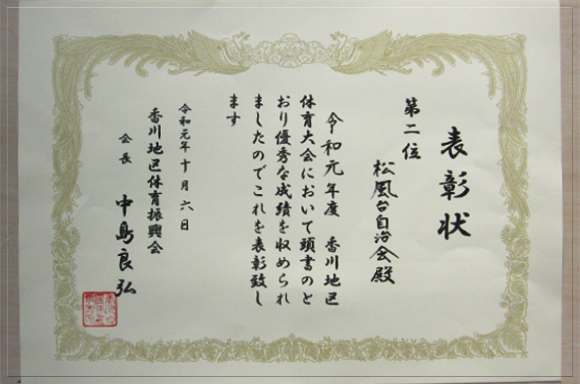 表彰状
第二位
松風台自治会殿
令和元年度 香川地区
体育大会において頭書のと
おり優秀な成績を収められ
ましたのでこれを表彰致し
ます
令和元年十月六日
香川地区体育振興会
会長 中島良弘